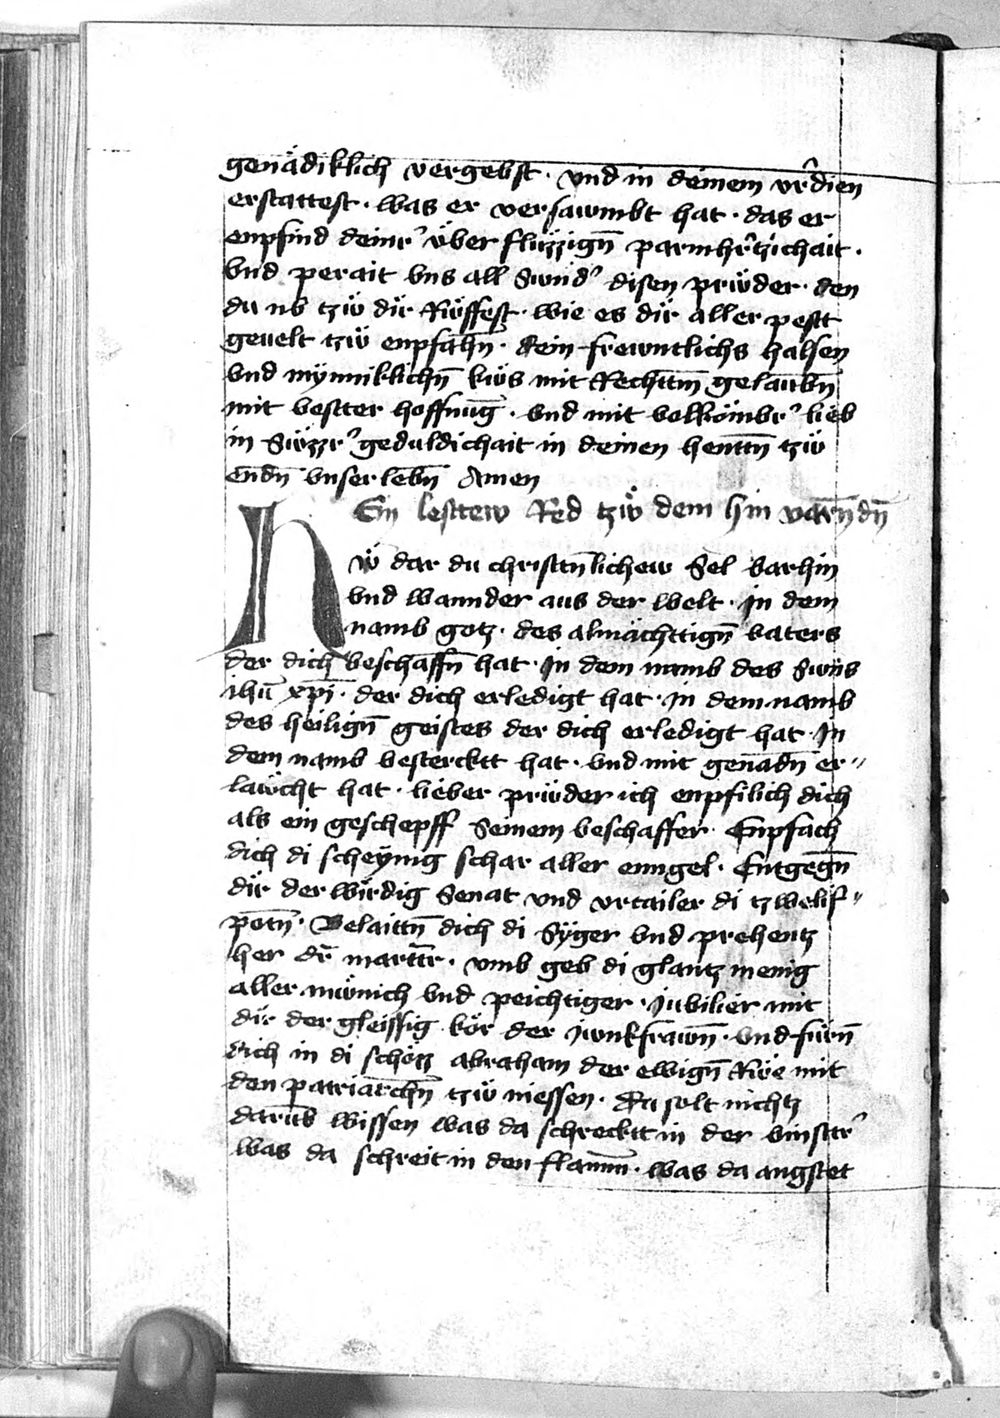 genädiklich vergebst · vnd in deinem vrdien
erstattest · was er versawmbt hat · das er
enpfind deinr' v̈berflüzzign̄ parmhr̄tzichait ·
vnd perait vns all Swnd' disen prüder · den
du nv tzẅ dir Rẅffest · wie es dir aller pestt
geuelt tzẅ enpfahn̄ · dein frewntlichs halsen
vnd mynniklichn̄ kẅs mit Rechttm̄ gelaubn̄
mit vestter hoffnūg · vnd mit volkömbr' lieb
in Sẅzzr' geduldichait in deinen henttn̄ tzẅ
endn̄ vnser lebn̄ Amen
Ein lesttew Red tzẅ dem hin varn̄dn̄
Nẅ dar du christn̄lichew Sel var hin
vnd wannder aus der welt · In dem
namb gotz · des almächttign̄ vaters
der dich beschaffn̄ hat · In dem namb des Swns
ihū xp̄i · der dich erledigt hat · in dem namb
des heilign̄ geistes der dich erledigt hat · In
dem namb besterckt hat · vnd mit genadn̄ er〃
lawcht hat · lieber prüder ich enpfilich dich
als ein geschepff Seinem beschaffer · Enpfach
dich di scheynig schar aller enngel · Entgegn̄
dir der wirdig Senat vnd vrtailer di tzwelif〃
potn̄ · Belaittn̄ dich di Syger vnd prehentz
her dr̄ martr̄r · vmb geb di glantz menig
aller mẅnich vnd peichtiger · Jubilier mit
dir der gleissig kör der Junkfrawn̄ · vnd fürn̄
dich in di schözz abraham der ewign̄ Rẅe mit
den patriarchn̄ tzẅ niessen · Du solt nichtz
darūb wissen was da schreckt in der vinsttr'
was da schreit in den flamm̄ · was da angstet